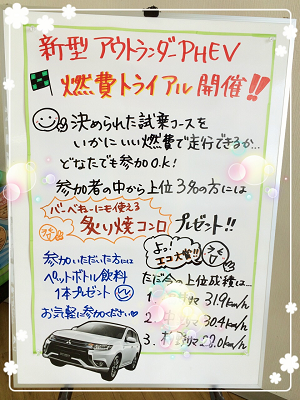 新型 アウトランダーPHEV
燃費トライアル開催!!
決められた試乗コースを
いかにいい燃費で走行できるか…
どなたでも参加O.K!
参加者の中から上位3名の方には
バーベキューにも使える
炙り焼コンロ
プレゼント!!
よっ!
エコ大賞!!
参加いただいた方には
ペットボトル飲料
1本プレゼント
お気軽に参加ください
ただ今の上位成績は…
1. サマ 31.9km/h
2. サマ 30.4km/h
3. 村 サマ .0km/h